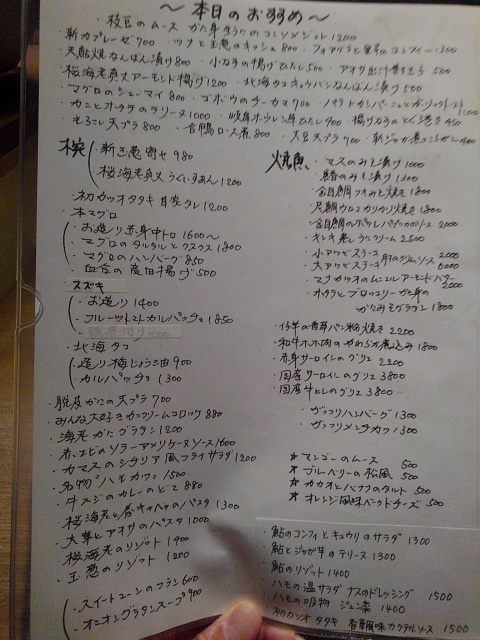 ～本日のおすすめ～
・枝豆のムース かた身生うにのコンソメジュレ 1200
・新カプレーゼ 700 ・ツナと玉葱のキッシュ 800 ・フォアグラと のコンフィー 1300
・天然鮎なんばん漬け 800 ・小なすの揚げびたし 500 ・アオサ出汁巻き玉子 500
・桜海老真丈アーモンド揚げ 1200 ・北海タコキュウバンなんばん漬け 500
・マグロのシューマイ 800 ・ゴボウのチーカマ 900
・カニとホタテのテリーヌ 1000 ・岐阜ホーレン草ひたし 900 ・揚げなすの 450
・もろこし天プラ 800 ・合鴨ロース煮 800 ・大豆天プラ 700 ・新ジャが煮っころがし 400
椀
・新玉葱寄せ 980
・桜海老真丈うぐいすあん 1200
・初カツオタタキ 1200
・本マグロ
・お造り赤身中トロ 1600～
・マグロのタルタルとクスクス 1800
・マグロのハンバーグ 850
・血合の竜田揚げ 500
スズキ
・お造り 1400
・フルーツトマトカルパッチョ 1850
・北海タコ
・造り梅じょうゆ 900
・カルパッチョ 1300
・脱皮かにの天プラ 700
・みんな大好きカニクリームコロッケ 880
・海老かにグラタン 1200
・赤エビのソテーアメリケーヌソース 1600
・カマスのシチリア風フライサラダ 1200
・名物"ハモカツ" 1500
・牛スジのカレーのどて 880
・桜海老と春キャベツのパスタ 1300
・大葉とアオサのパスタ 1000
・桜海老のリゾット 1400
・玉葱のリゾット 1200
・スイートコーンのフラン 600
・オニオングラタンスープ 900
焼魚
・マスのみそ漬け 1000
・ のみそ漬け 1300
・金目鯛フキみそ焼き 1800
・尼鯛ウロコカリカリ焼き 1800
・金目鯛のポワレバジルのソース 2000
・キンキ煮 うにクリーム 2500
・小アワビステーキ 2000
・大アワビステーキ 肝のクリームソース 6000
・マナカツオのムニエルアーモンドバター 2000
・ホタテとブロッコリー かた身の
かに みそグラタン 1800
・仔羊の香草パン粉焼き 2200
・和牛ホホ肉のやわらか煮込み 1800
・赤身サーロインのグリエ 2200
・国産サーロインのグリエ 3800
・国産牛ヒレのグリエ 3800
・ガッツリハンバーグ 1300
・ガッツリメンチカツ 1300
☆マンゴーのムース 500
☆ブルーベリーの松風 500
☆カカオとバナナのタルト 500
☆オレンジ風味ベークドチーズ 500
・鮎のコンフィとキュウリのサラダ 1300
・鮎とジャガ芋のテリーヌ 1300
・鮎のリゾット 1400
・ハモの温サラダ ナスのドレッシング 1500
・ハモの吸物 ジュン菜 1400
・初カツオ タタキ 香草風味カクテルソース 1500